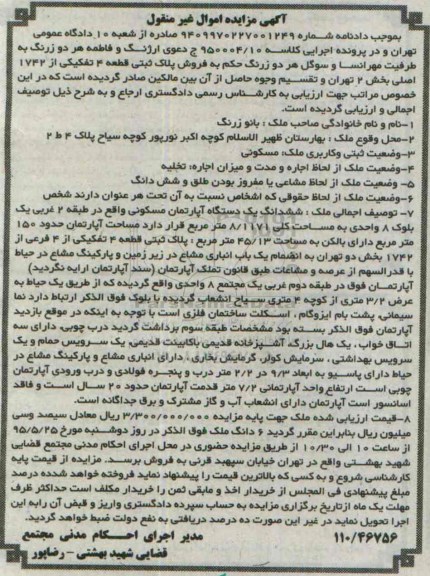 آگهی مزایده اموال غیر منقول
بموجب دادنامه شماره ۹۴۰۹۹۷۰۲۲۷۰۰۱۲۴۹ صادره از شعبه ۱۰ دادگاه عمومی
تهران و در پرونده اجرایی کلاسه ۹۵۰۰۰۴/۱۰ ج دعوی ارژنگ و فاطمه هر دو زرنگ به
طرفیت مهرانسا و سوگل هر دو زرنگ حکم به فروش پلاک ثبتی قطعه ۴ تفکیکی از ۱۷۴۲
اصلی بخش ۲ تهران و تقسیم وجوه حاصل از آن بین مالکین صادر گردیده است که در این
خصوص مراتب جهت ارزیابی به کارشناس رسمی دادگستری ارجاع و به شرح ذیل توصیف
اجمالی و ارزیابی گردیده است.
۱-نام و نام خانوادگی صاحب ملک : بانو زرنگ
۲-محل وقوع ملک : بهارستان ظهیر الاسلام کوچه اکبر نورپور کوچه سیاح پلاک ۴ ط ۲
۳-وضعیت ثبتی وکاربری ملک: مسکونی
۴-وضعیت ملک از لحاظ اجاره و مدت و میزان اجاره: تخلیه
۵- وضعیت ملک از لحاظ مشاعی یا مفروز بودن طلق و شش دانگ
۶-وضعیت ملک از لحاظ حقوقی که اشخاص نسبت به آن تحت هر عنوان دارند شخص
۷- توصیف اجمالی ملک : ششدانگ یک دستگاه آپارتمان مسکونی واقع در طبقه ۲ غربی یک
بلوک ۸ واحدی به مساحت کل ۸/۱۷۱ متر مربع قرار دارد مساحت آپارتمان حدود ۱۵۰
متر مربع دارای بالکن به مساحت ۴۵/۱۳ متر مربع : پلاک ثبتی قطعه ۴ تفکیکی از ۴ فرعی از
۱۷۴۲ بخش دو تهران به انضمام یک باب انباری مشاع در زیر زمین و پارکینگ مشاع در حیاط
با قدرالسهم از عرصه و مشاعات طبق قانون تملک آپارتمان (سند آپارتمان ارایه نگردید)
آپارتمان فوق در طبقه دوم غربی یک مجتمع ۸ واحدی واقع گردیده که از طریق یک حیاط به
عرض ۳/۲ متری از کوچه ۴ متری سیاح انشعاب گردیده با بلوک فوق الذکر ارتباط دارد نما
سیمانی، پشت بام ایزوگام ، اسکلت ساختمان فلزی است با توجه به اینکه در موقع بازدید
آپارتمان فوق الذکر بسته بود مشخصات طبقه سوم برداشت گردید درب چوبی، دارای سه
اتاق خواب ، یک هال بزرگ، آشپزخانه قدیمی باکابینت قدیمی، یک سرویس حمام و یک
سرویس بهداشتی ، سرمایش کولر، گرمایش بخاری ، دارای انباری مشاع و پارکینگ مشاع در
حیاط دارای پاسیو به ابعاد ۹/۳ در ۲/۲ متر درب و پنجره فولادی و درب ورودی آپارتمان
چوبی است ارتفاع واحد آپارتمانی ۷/۲ متر قدمت آپارتمان حدود ۲۰ سال است و فاقد
اسانسور است آپارتمان دارای انشعاب آب و گاز مشترک و برق جداگانه است.
۸-قیمت ارزیابی شده ملک جهت پایه مزایده ۳/۳۰۰/۰۰۰/۰۰۰ ریال معادل سیصد وسی
میلیون ریال بنابراین مقرر گردید ۶ دانگ ملک فوق الذکر در روز دوشنبه مورخ ۹۵/۵/۲۵
از ساعت ۱۰ الی ۱۰/۳۰ از طریق مزایده حضوری در محل اجرای احکام مدنی مجتمع قضایی
شهید بهشتی واقع در تهران خیابان سپهبد قرنی به فروش برسد. مزایده از قیمت پایه
کارشناسی شروع و به کسی که بالاترین قیمت را پیشنهاد نماید فروخته خواهد شده ده درصد
مبلغ پیشنهادی فی المجلس از خریدار اخذ و مابقی ثمن را خریدار مکلف است حداکثر ظرف
مهلت یک ماه ازتاریخ برگزاری مزایده به حساب سپرده دادگستری واریز و قبض آن رابه این
اجرا تحویل نماید در غیر این صورت ده درصد دریافتی به نفع دولت ضبط خواهد گردید.
مدیر اجرای احکام مدنی مجتمع
قضایی شهید بهشتی – رضاپور
۱۱۰/۴۶۷۵۶